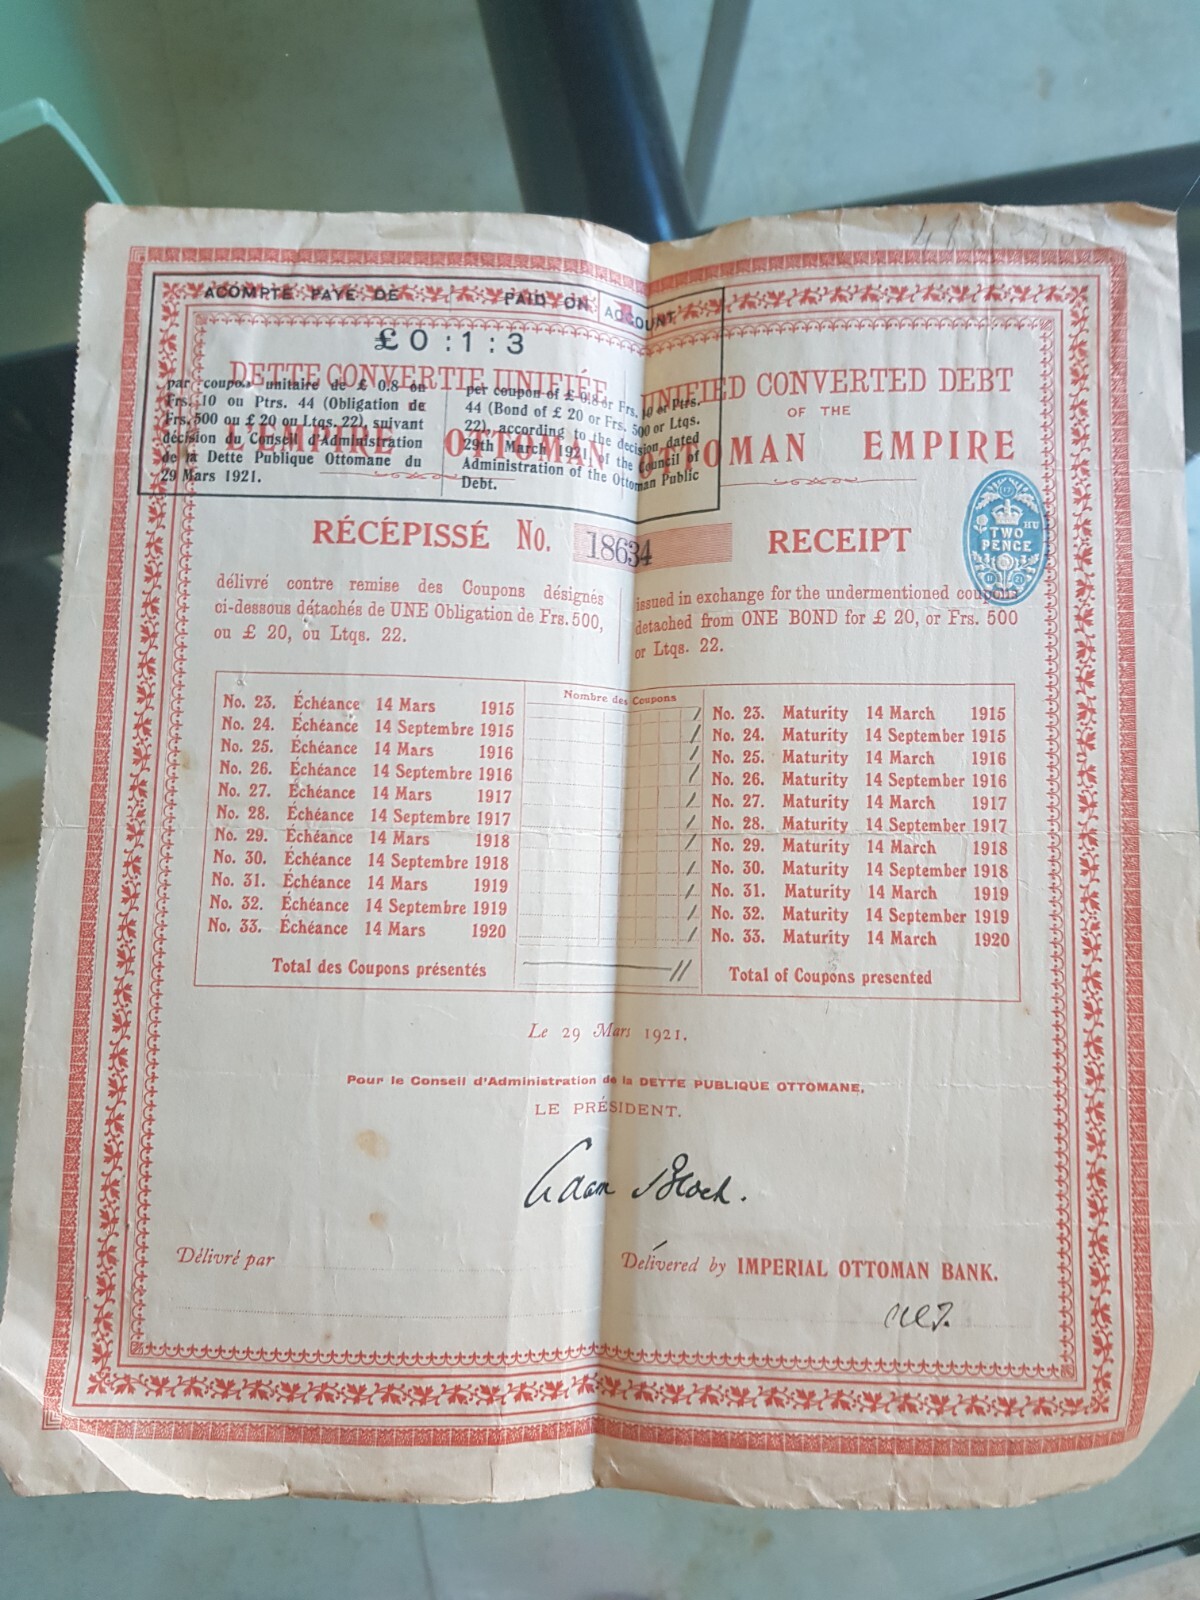 ACOMPTE PAYÉ DE PAID ON ACCOUNT
£ 0 : 1 : 3
par coupon unitaire de £ 0.8 ou
Frs. 10 ou Ptrs. 44 (Obligation de
Frs. 500 ou £ 20 ou Ltqs. 22), suivant
décision du Conseil d'Administration
de la Dette Publique Ottomane du
29 Mars 1921.
per coupon of £ 0.8 or Frs. 10 or Ptrs.
44 (Bond of £ 20 or Frs. 500 or Ltqs.
22), according to the decision dated
29th March 1921 of the Council of
Administration of the Ottoman Public
Debt.
DETTE CONVERTIE UNIFIÉE
EMPIRE OTTOMAN
UNIFIED CONVERTED DEBT
OF THE
OTTOMAN EMPIRE
TWO
PENCE
HU
11 21
RÉCÉPISSÉ No. 18634 RECEIPT
délivré contre remise des Coupons désignés
ci-dessous détachés de UNE Obligation de Frs. 500,
ou £ 20, ou Ltqs. 22.
issued in exchange for the undermentioned coupons
detached from ONE BOND for £ 20, or Frs. 500
or Ltqs. 22.
Nombre des Coupons
No. 23. Échéance 14 Mars 1915 / No. 23. Maturity 14 March 1915
No. 24. Échéance 14 Septembre 1915 / No. 24. Maturity 14 September 1915
No. 25. Échéance 14 Mars 1916 / No. 25. Maturity 14 March 1916
No. 26. Échéance 14 Septembre 1916 / No. 26. Maturity 14 September 1916
No. 27. Échéance 14 Mars 1917 / No. 27. Maturity 14 March 1917
No. 28. Échéance 14 Septembre 1917 / No. 28. Maturity 14 September 1917
No. 29. Échéance 14 Mars 1918 / No. 29. Maturity 14 March 1918
No. 30. Échéance 14 Septembre 1918 / No. 30. Maturity 14 September 1918
No. 31. Échéance 14 Mars 1919 / No. 31. Maturity 14 March 1919
No. 32. Échéance 14 Septembre 1919 / No. 32. Maturity 14 September 1919
No. 33. Échéance 14 Mars 1920 / No. 33. Maturity 14 March 1920
Total des Coupons présentés 11 Total of Coupons presented
Le 29 Mars 1921.
Pour le Conseil d'Administration de la DETTE PUBLIQUE OTTOMANE,
LE PRÉSIDENT.
Adam Block.
Délivré par
Delivered by IMPERIAL OTTOMAN BANK.